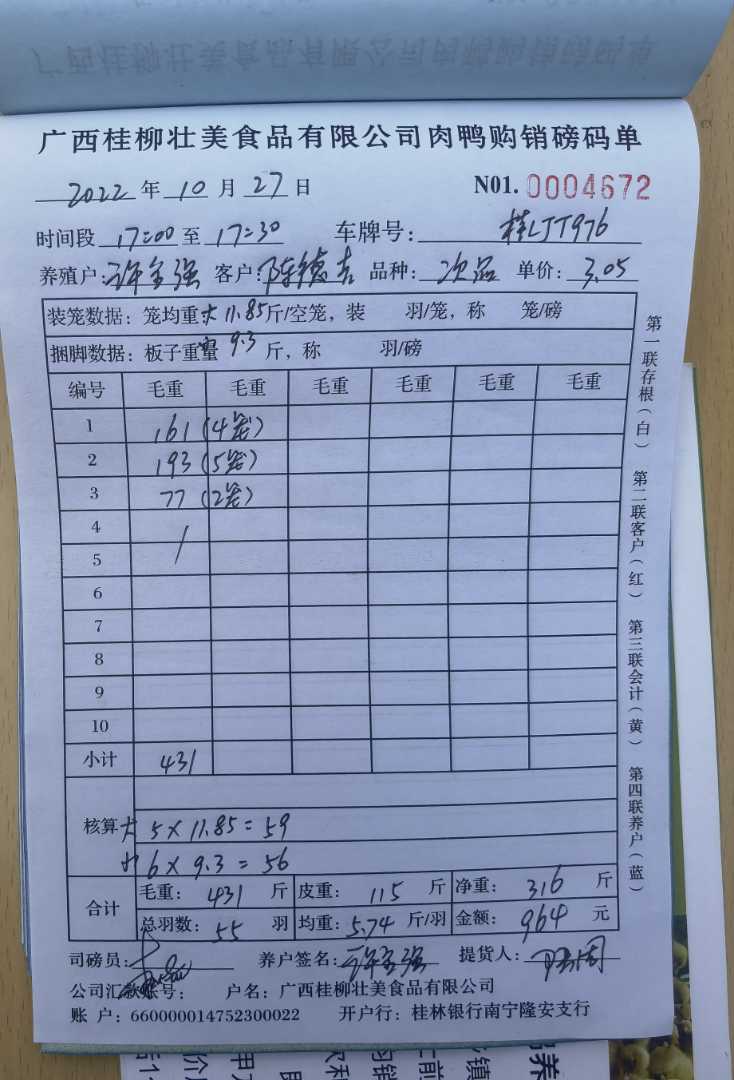 广西桂柳壮美食品有限公司肉鸭购销磅码单
广西桂柳壮美食品有限公司肉鸭购销磅码单
2022 年 10 月 27 日 N01. 0004672
时间段 17:00 至 17:30 车牌号: 桂LJT976
养殖户: 许全强 客户: 陈德吉 品种: 次品 单价: 3.05
装笼数据: 笼均重 大 11.85 斤/空笼, 装 羽/笼, 称 笼/磅
捆脚数据: 板子重量 9.3 斤, 称 羽/磅
编号 毛重 毛重 毛重 毛重 毛重 毛重
1 161 (4笼)
2 193 (5笼)
3 77 (2笼)
4 /
5
6
7
8
9
10
小计 431
核算 大 5 × 11.85 = 59
小 6 × 9.3 = 56
合计 毛重: 431 斤 皮重: 115 斤 净重: 316 斤
总羽数: 55 羽 均重: 5.74 斤/羽 金额: 964 元
司磅员: 养户签名: 许全强 提货人:
公司汇款账号: 户名: 广西桂柳壮美食品有限公司
账 户: 660000014752300022 开户行: 桂林银行南宁隆安支行
第一联存根(白) 第二联客户(红) 第三联会计(黄) 第四联养户(蓝)